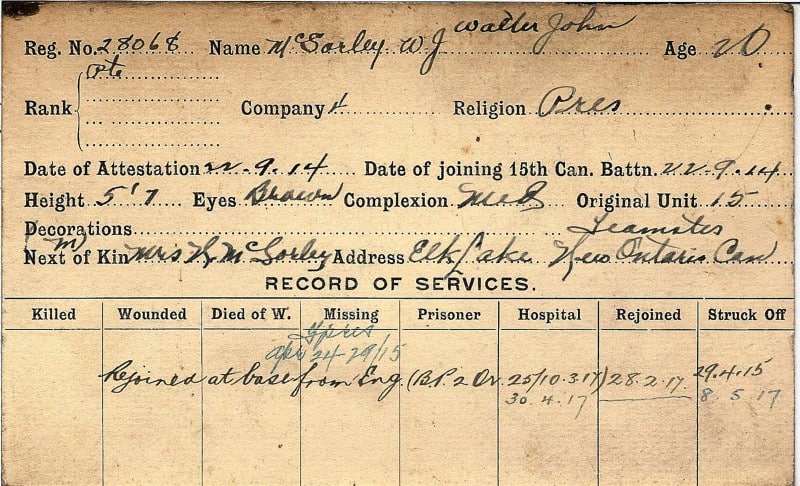 Walter John
Reg. No. 28068 Name McSorley W J Age 20
Pte
Rank Company 4 Religion Pres
Date of Attestation 22.9.14 Date of joining 15th Can. Battn. 22.9.14
Height 5'7 Eyes Brown Complexion Med Original Unit 15
Decorations Teamster
(M)
Next of Kin Mrs McSorley Address Elk Lake New Ontario Can
RECORD OF SERVICES.
Killed Wounded Died of W. Missing Prisoner Hospital Rejoined Struck Off
Ypres
Apr 24-29/15
Rejoined at base from Eng. (B.P. 2 Or. 25/10.3.17) 28.2.17 29.4.15
30.4.17 8.5.17